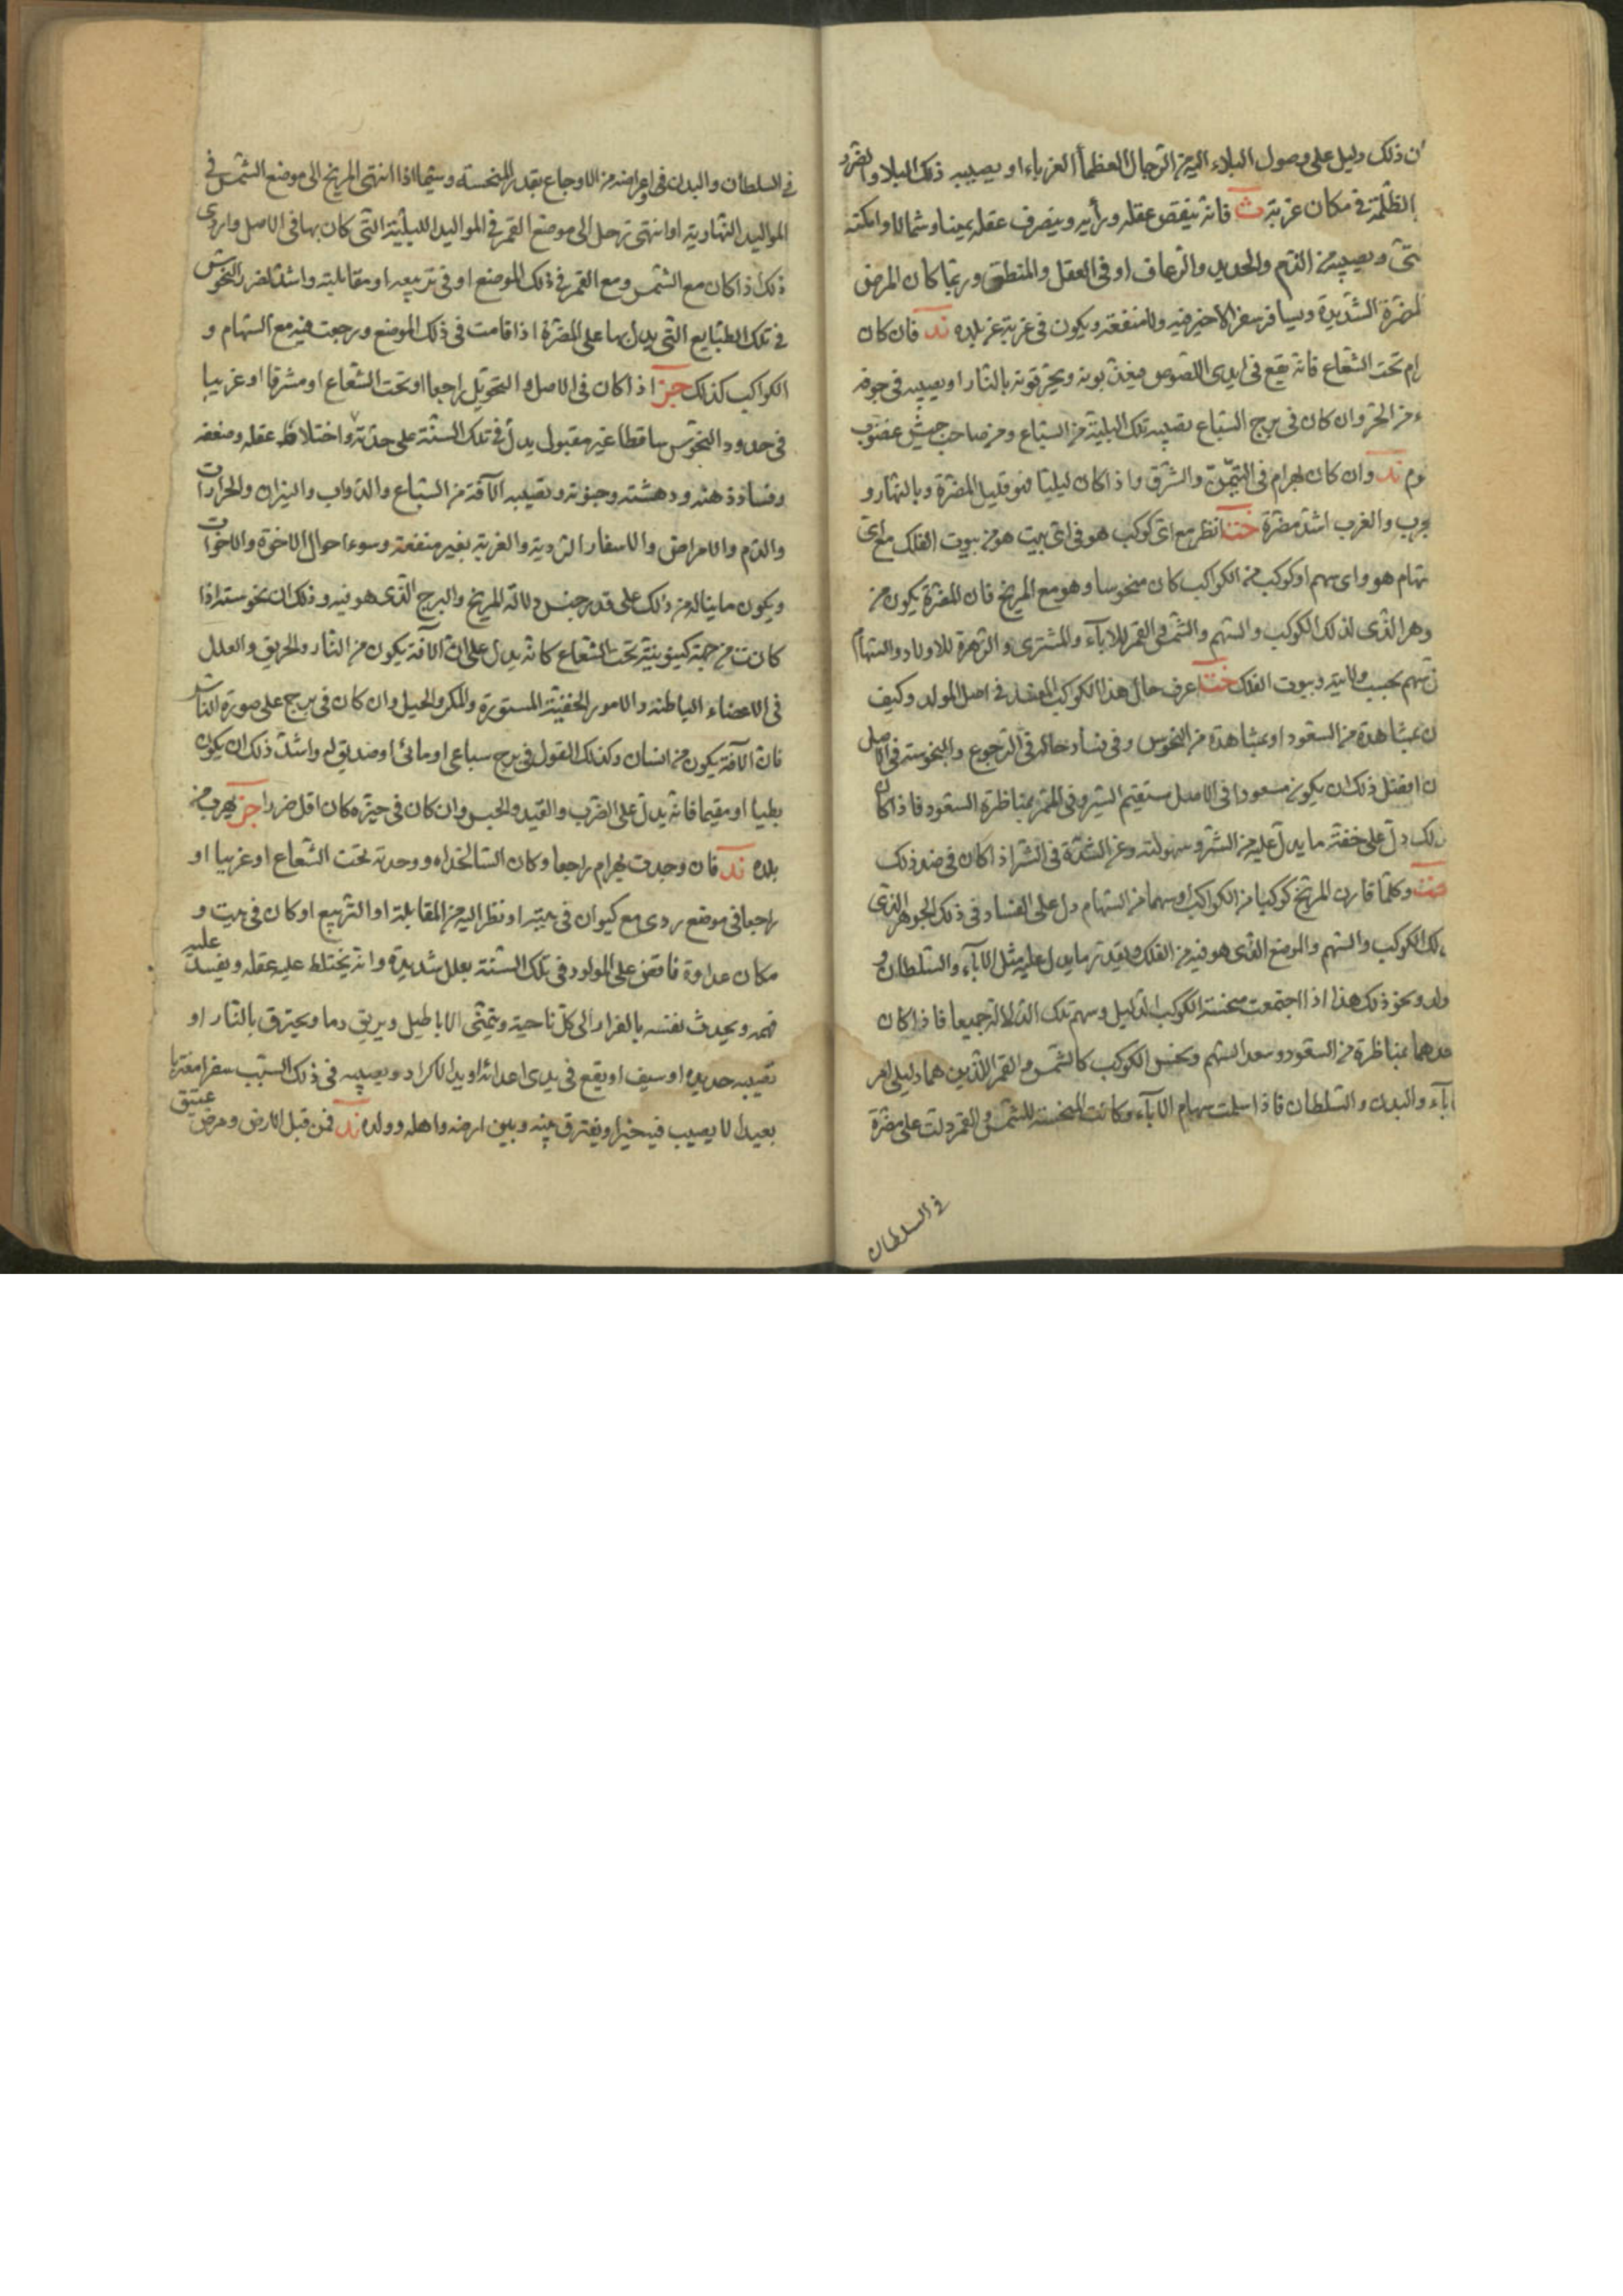 ن ذلك دليل على وصول البلاء اليه من الرجال العظمأ الغرباء او يصيبه ذلك البلاء والضرر
الظلمة فى مكان غربته ث فانه ينقص عقله ورأيه وينصرف عقله يمينا وشمالا وامكنه
شتى ويصيبه من الدم والحديد والرعاف او فى العقل والمنطق وربما كان المرض
لمضرة الشديدة ويسافر سفر الا خير فيه ولا منفعة ويكون فى غربة عن بلده ند فان كان
رام تحت الشعاع فانه يقع فى ايدى اللصوص فيعذبونه ويحرقونه بالنار او يصيبه فى جوفه
ء من الحر وان كان فى برج السباع تصيبه تلك البلية من السباع ومن صاحب جيش غضوب
وم ند وان كان بهرام فى التيمن والشرق واذا كان ليليا فهو قليل المضرة وبالنهار و
والغرب اشد مضرة خت انظر مع اى كوكب هو فى اى بيت هو من بيوت الفلك مع اى
سهام هو واى سهم او كوكب من الكواكب كان منحوسا وهو مع المريخ فان المضرة يكون من
وهر الذى لذلك الكوكب والسهم والشمس والقمر للاباء والمشترى والزهرة للاولاد والسهام
سهم بحسب ولايته وبيوت الفلك خت اعرف حال هذا الكوكب فى اصل المولد وكيف
ن بمشاهدة من السعود او بمشاهدة من النحوس وفى فساد حاله فى الرجوع والنحوسة فى الاصل
ن افضل ذلك ان يكون مسعودا فى الاصل مستقيم السير وفى الممر بمناظرة السعود فاذا كان
ذلك دل على خفته ما يدل عليه من الشر وسهولته وعن الشدة فى الشر اذا كان فى ضد ذلك
خت وكلما قارن المريخ كوكبا من الكواكب او سهما من السهام دل على الفساد فى ذلك الجوهر الذى
لك الكوكب والسهم والموضع الذى هو فيه من الفلك وبقدر ما يدل عليه مثل الاباء والسلطان و
ولد ونحو ذلك هذا اذا اجتمعت منحسة الكوكب الدليل وسهم تلك الدلالة جميعا فاذا كان
حدهما بمناظرة من السعود وسعد السهم ونحس الكوكب كالشمس والقمر اللذين هما دليلى امر
اباء والبدن والسلطان فاذا سلمت سهام الاباء وكانت المنحسة للشمس والقمر دلت على مضرة
فى السلطان
فى السلطان والبدن فى اعراضه من الاوجاع بقدر المنحسة وسيما اذا انتهى المريخ الى موضع الشمس فى
المواليد النهارية او انتهى زحل الى موضع القمر فى المواليد الليلية التى كان بها فى الاصل واردى
ذلك اذا كان مع الشمس ومع القمر فى ذلك الموضع او فى تربيعه او مقابلته واشد لضرر النحوس
فى تلك الطبايع التى يدل بها على المضرة اذا قامت فى ذلك الموضع ورجعت فيه مع السهام و
الكواكب كذلك جز اذا كان فى الاصل والتحويل راجعا او تحت الشعاع او مشرقا او غربيا
فى حدود النحوس ساقطا غير مقبول يدل فى تلك السنة على حدته واختلاط عقله وضعفه
وفساد ذهنه ودهشته وجنونه وتصيبه الآفة من السباع والدواب والنيران والحرارات
والدم والامراض والاسفار الردية والغربة بغير منفعة وسوء احوال الاخوة والاخوات
ويكون ما يناله من ذلك على قدر جنس دلالة المريخ والبرج الذى هو فيه وذلك ان نحوسته اذا
كانت من جهة كينونيته تحت الشعاع كانه يدل على ان الآفة يكون من النار والحريق والعلل
فى الاعضاء الباطنة والامور الخفية المستورة والمكر والحيل وان كان فى برج على صورة الناس
فان الآفة يكون من انسان وكذلك القول فى برج سباعى او مائى او صديق له واشد ذلك ان يكون
بطيا او مقيما فانه يدل على الضرب والقيد والحبس وان كان فى حيزه كان اقل ضررا جز يهرب من
بلده ند فان وجدت بهرام راجعا وكان السالخداه ووجدته تحت الشعاع او غربيا او
راجعا فى موضع ردى مع كيوان فى بيته او نظر اليه من المقابلة او التربيع او كان فى بيت و
مكان عداوة فاقض على المولود فى تلك السنة بعلل شديدة وانه يختلط عليه عقله ويفسد عليه
فهمه ويحدث نفسه بالفرار الى كل ناحية ويتمنى الاباطيل ويريق دما ويحترق بالنار او
تصيبه حديده او سيف او يقع فى يدى اعدائه او يد الاكراد ويصيبه فى ذلك السبب سفرا مغتربا
بعيدا لا يصيب فيه خيرا ويفترق بينه وبين ارضه واهله وولده ند فمن قبل الارض ومرض عتيق